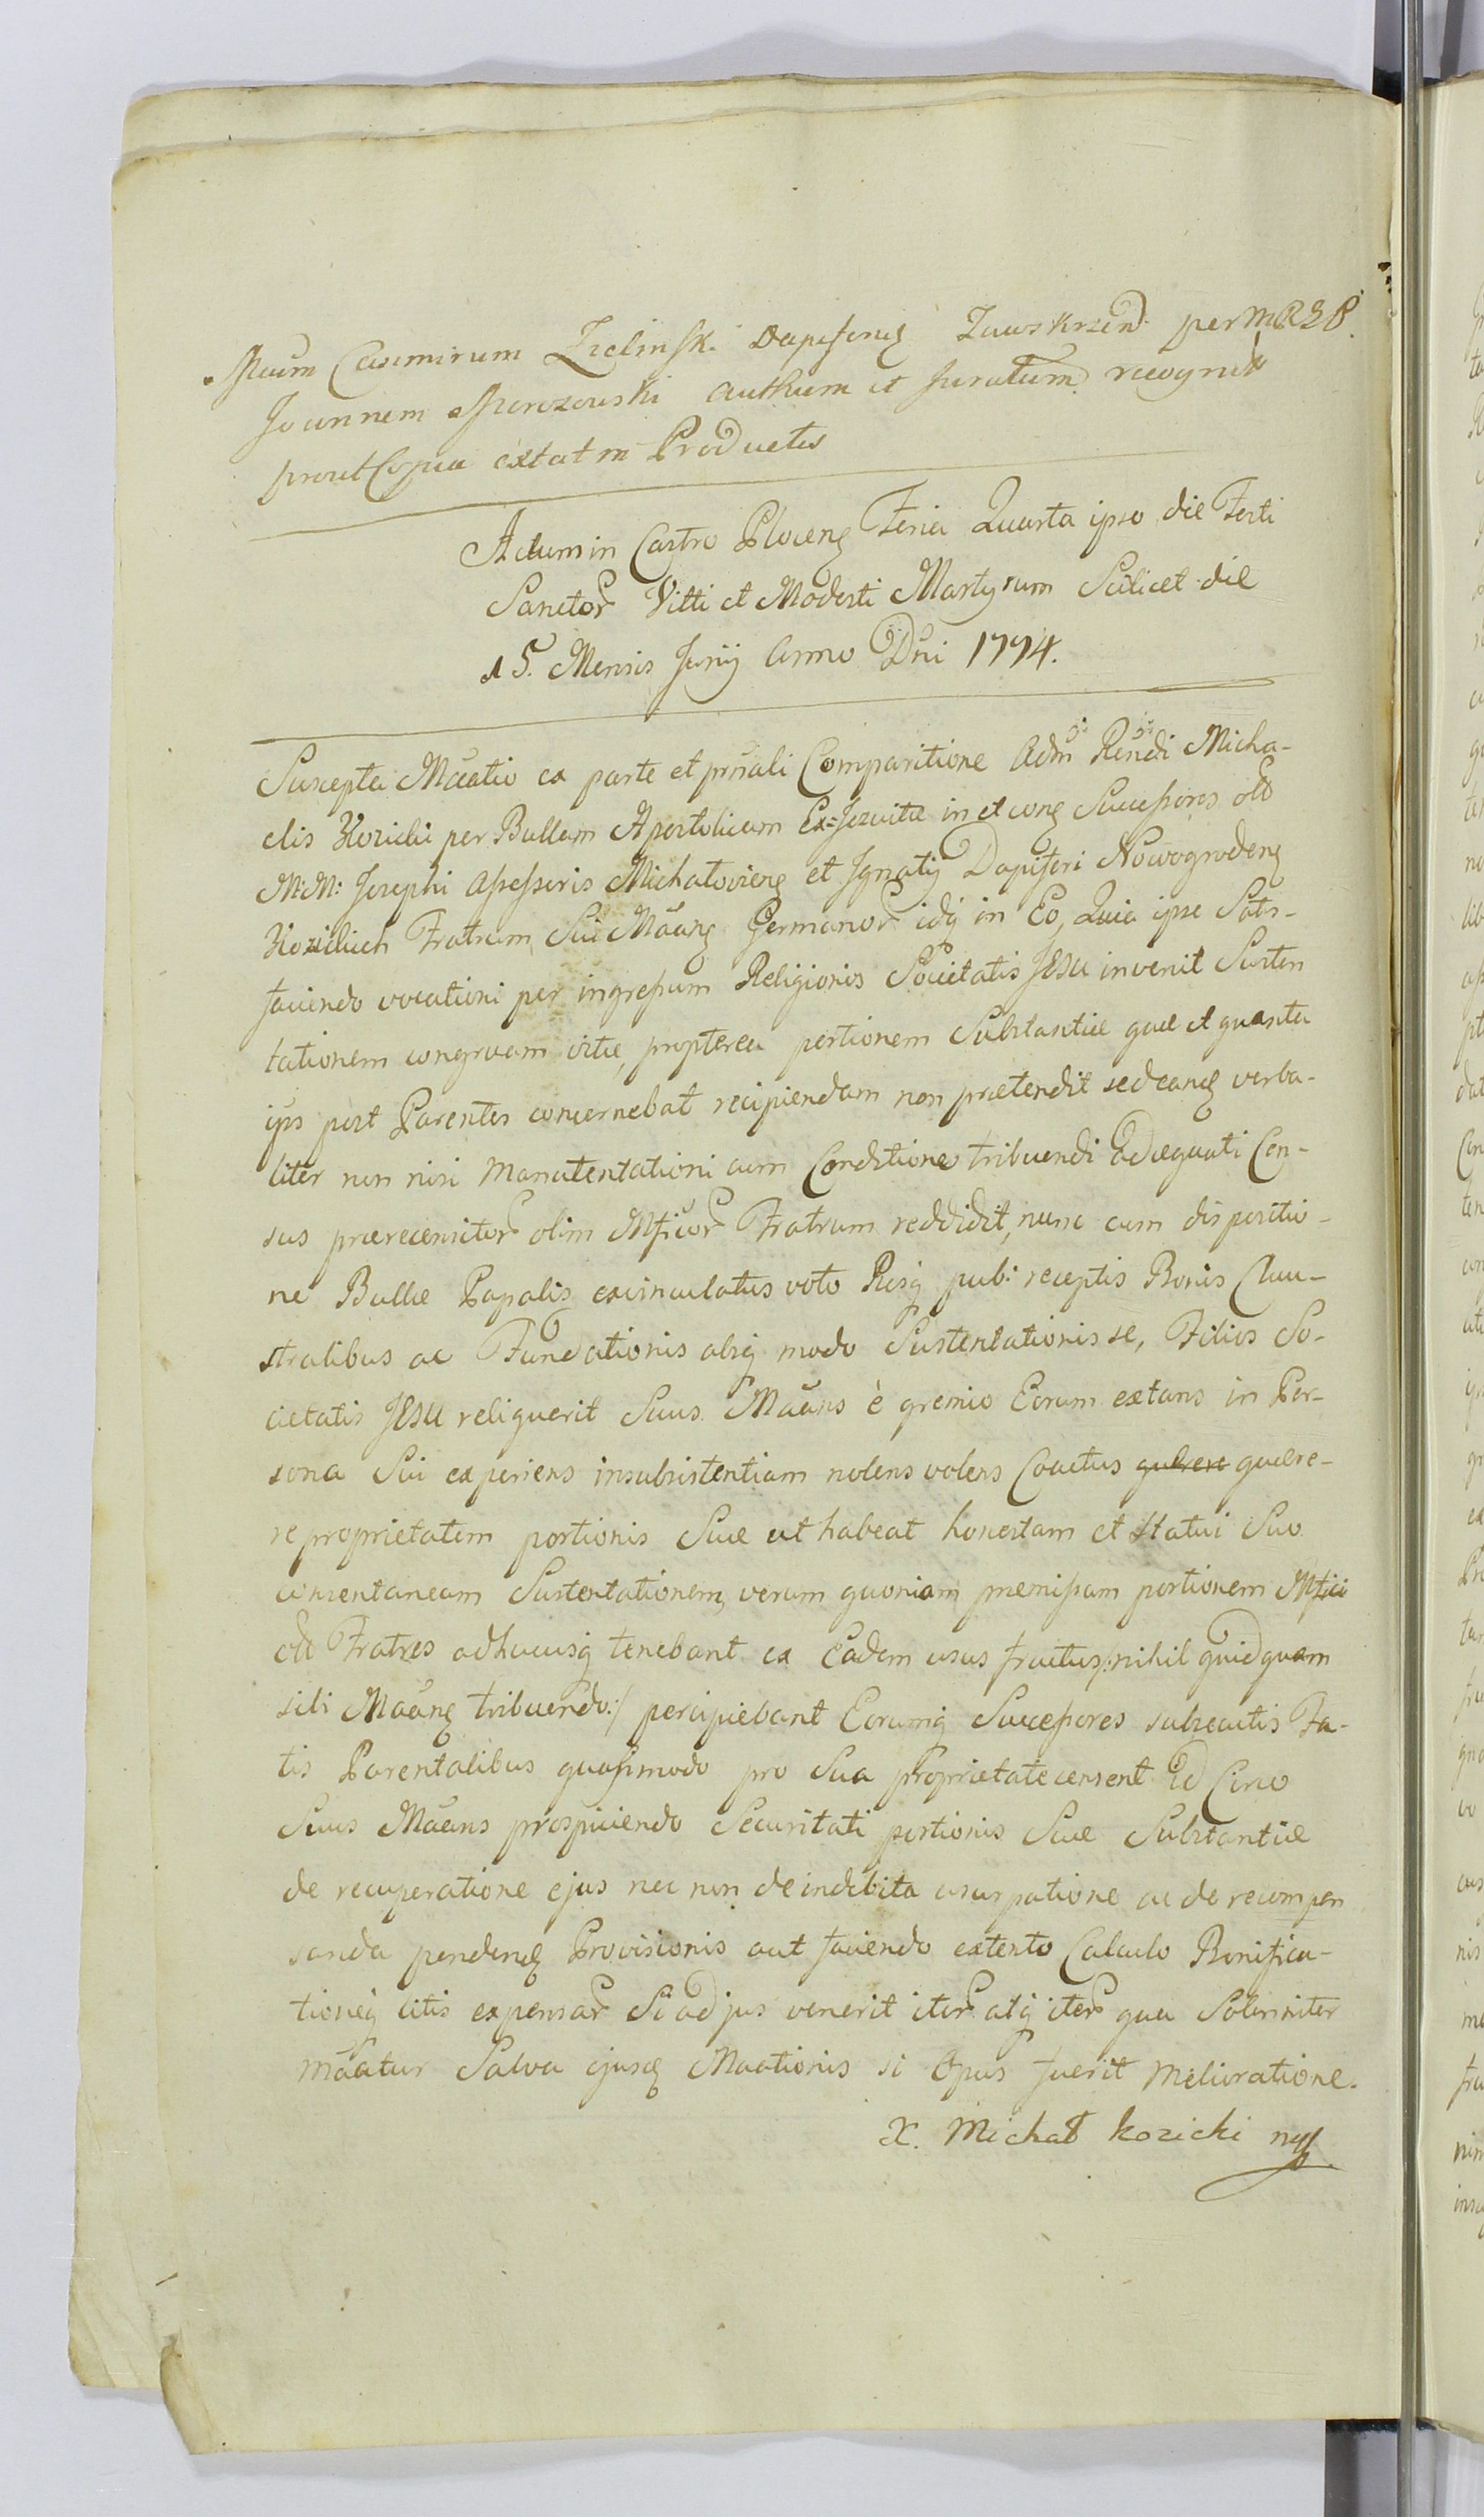 Casimirum Zielinsk. Dapiferum Zawskrzen. per MRSB
Joannem Morozowski authum et Juratum recognit
prout Copia extat in Productis
Actum in Castro Ploceng Feria Quarta ipso die Festi
Sanctor Vitti et Modesti Martyrum Scilicet die
15. Mensis Junij Anno Dni 1774.
Suscepta Maatio ex parte et prnali Comparitione Adm Rendi Micha-
elis Kozicki per Bullam Apostolicam Ex=Jezuitæ in et cong Successores olo
M:M: Josephi Assessoris Michaloviens et Ignatij Dapiferi Nowogrodeng
Kozickich Fratrum Sui Maang Germanor idq in Eo, Quia ipse Satis-
faciendo vocationi per ingressum Religionis Societatis JESU invenit Susten
tationem congruam vitæ, propterea portionem Substantiæ quæ et quanta
ips post Parentes concernebat recipiendam non prætendit sed eang verba-
liter non nisi manutentationi cum Conditione tribuendi adæquati Cen-
sus prærecensitor olim Mficor Fratrum reddidit, nunc cum dispositio-
ne Bullæ Papalis exvinculatus voto Resq pub: receptis Bonis Clau-
stralibus ac Fundationis absq modo Sustentationis se, Filios So-
cietatis JESU reliquerit Suus Maans è gremio Eorum extans in Per-
sona Sui experiens insubsistentiam nolens volens Coactus quærere quære-
re proprietatem portionis Suæ ut habeat honestam et Statui Suo
consentaneam Sustentationem, verum quoniam præmissam portionem Mfici
olo Fratres adhucusq tenebant ex Eadem usus fructus /:nihil quidquam
sibi Maang tribuendo:/ percipiebant Eorumq Successores subsecutis Fa-
tis Parentalibus quasimodo pro Sua Proprietate censent Id Circo
Suus Maans prospiciendo Securitati portionis Suæ Substantiæ
de recuperatione ejus nec non de indebita usurpatione ac de recompen
sanda pendeng Provisionis aut faciendo extento Calculo Bonifica-
tioneq litis expensar Si ad jus venerit iter atq iter qua Solenniter
maatur Salva ejusd Maationis si Opus fuerit melioratione.
X. Michał Kozicki